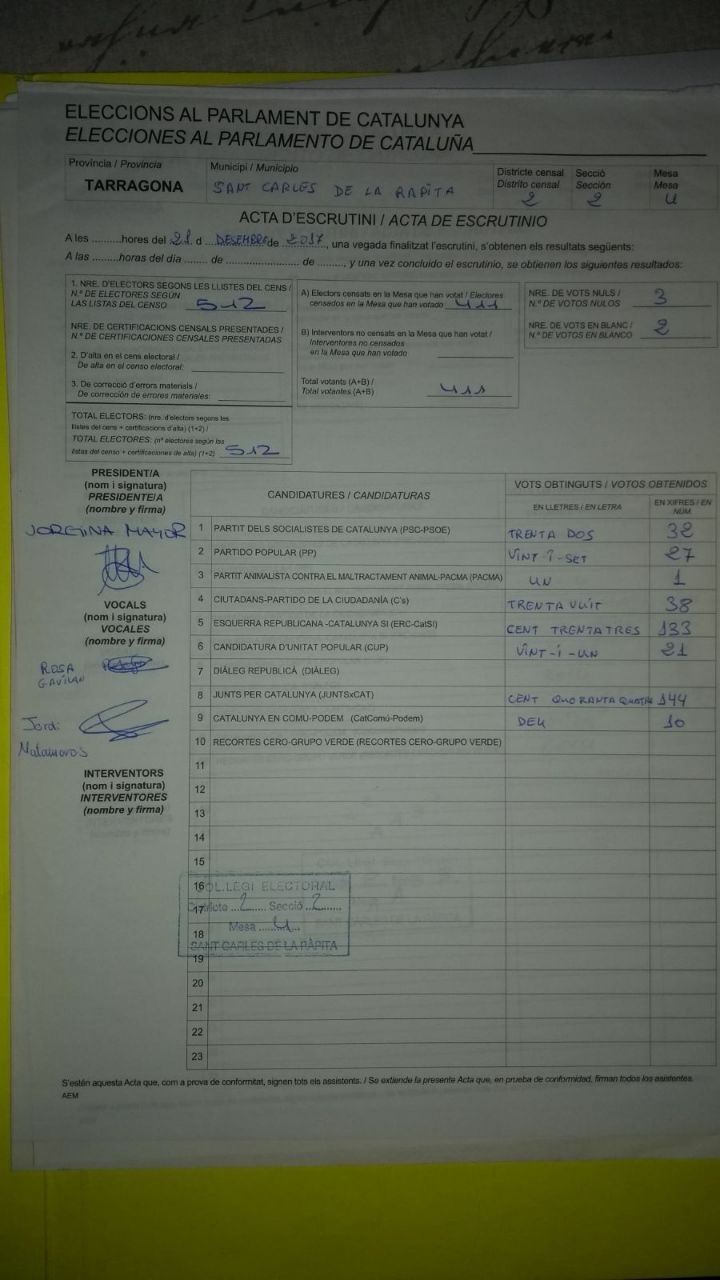 ELECCIONS AL PARLAMENT DE CATALUNYA
ELECCIONES AL PARLAMENTO DE CATALUÑA
Província / Provincia
TARRAGONA
Municipi / Municipio
SANT CARLES DE LA RÀPITA
Districte censal
Distrito censal
2
Secció
Sección
2
Mesa
Mesa
U
ACTA D'ESCRUTINI / ACTA DE ESCRUTINIO
A les .........hores del 21. d DESEMBRE de 2017, una vegada finalitzat l'escrutini, s'obtenen els resultats següents:
A las .........horas del día ...... de ........................ de ........, y una vez concluido el escrutinio, se obtienen los siguientes resultados:
1. NRE. D'ELECTORS SEGONS LES LLISTES DEL CENS /
N.º DE ELECTORES SEGÚN
LAS LISTAS DEL CENSO 512
NRE. DE CERTIFICACIONS CENSALS PRESENTADES /
N.º DE CERTIFICACIONES CENSALES PRESENTADAS
2. D'alta en el cens electoral /
De alta en el censo electoral:
3. De correcció d'errors materials /
De corrección de errores materiales:
TOTAL ELECTORS: (nre. d'electors segons les
llistes del cens + certificacions d'alta) (1+2) /
TOTAL ELECTORES: (nº electores según las
listas del censo + certificaciones de alta) (1+2) 512
A) Electors censats en la Mesa que han votat / Electores
censados en la Mesa que han votado 411
B) Interventors no censats en la Mesa que han votat /
Interventores no censados
en la Mesa que han votado
Total votants (A+B) /
Total votantes (A+B) 411
NRE. DE VOTS NULS /
N.º DE VOTOS NULOS 3
NRE. DE VOTS EN BLANC /
N.º DE VOTOS EN BLANCO 2
PRESIDENT/A
(nom i signatura)
PRESIDENTE/A
(nombre y firma)
JORGINA MAYOR
VOCALS
(nom i signatura)
VOCALES
(nombre y firma)
ROSA
GAVILAN
Jordi
Matamoros
INTERVENTORS
(nom i signatura)
INTERVENTORES
(nombre y firma)
CANDIDATURES / CANDIDATURAS
VOTS OBTINGUTS / VOTOS OBTENIDOS
EN LLETRES / EN LETRA
EN XIFRES / EN NÚM
1 PARTIT DELS SOCIALISTES DE CATALUNYA (PSC-PSOE) TRENTA DOS 32
2 PARTIDO POPULAR (PP) VINT-I-SET 27
3 PARTIT ANIMALISTA CONTRA EL MALTRACTAMENT ANIMAL-PACMA (PACMA) UN 1
4 CIUTADANS-PARTIDO DE LA CIUDADANÍA (C's) TRENTA VUIT 38
5 ESQUERRA REPUBLICANA -CATALUNYA SI (ERC-CatSI) CENT TRENTA TRES 133
6 CANDIDATURA D'UNITAT POPULAR (CUP) VINT-I-UN 21
7 DIÀLEG REPUBLICÀ (DIÀLEG)
8 JUNTS PER CATALUNYA (JUNTSxCAT) CENT QUORANTA QUATRE 144
9 CATALUNYA EN COMÚ-PODEM (CatComú-Podem) DEU 10
10 RECORTES CERO-GRUPO VERDE (RECORTES CERO-GRUPO VERDE)
11
12
13
14
15
16
17
18
19
20
21
22
23
COL.LEGI ELECTORAL
Districte ...2...... Secció ..2.......
Mesa .....U....
SANT CARLES DE LA RÀPITA
S'estén aquesta Acta que, com a prova de conformitat, signen tots els assistents. / Se extiende la presente Acta que, en prueba de conformidad, firman todos los asistentes.
AEM